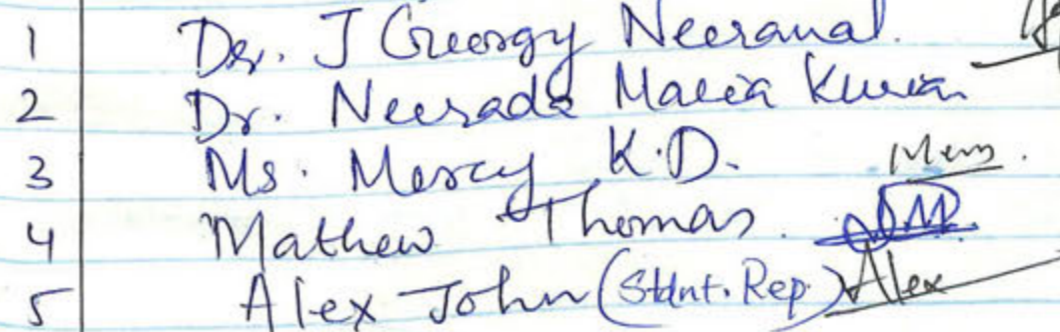 1 Dr. J Georgy Neeranal.
2 Dr. Neerada Maria Kurian
3 Ms. Mercy K.D.
4 Mathew Thomas.
5 Alex John (Stdnt. Rep.) Alex